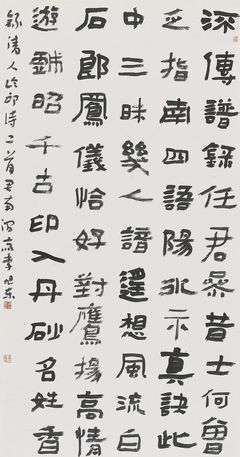 流傳譜錄任君參昔士何曾
乏指南四語陽冰示真訣此
中三昧幾人諳遙想風流白
石郎鳳儀恰好對鷹揚高情
遊黼昭千古印入丹砂名姓香
錄清人论印诗二首 李旭东